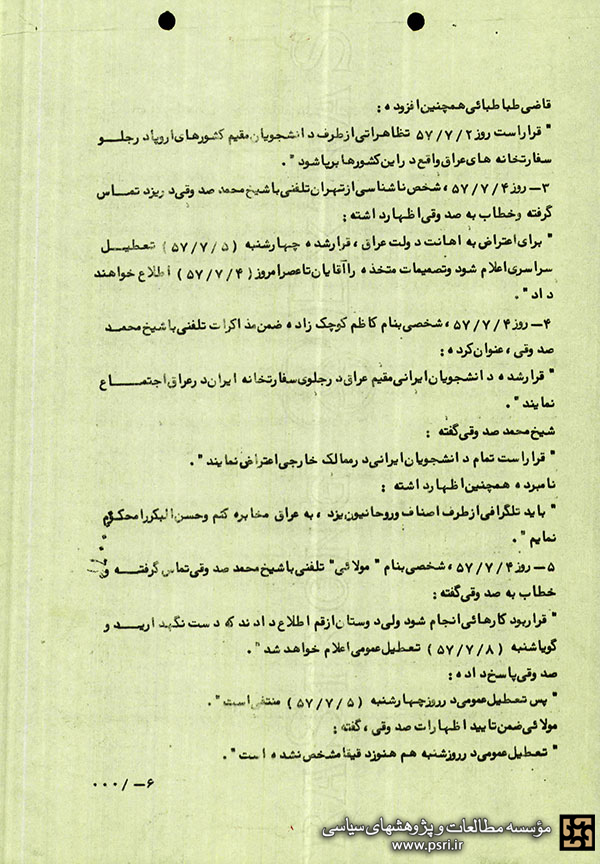 قاضی طباطبائی همچنین افزوده :
" قرار است روز ۵۷/۷/۲ تظاهراتی از طرف دانشجویان مقیم کشورهای اروپا در جلو
سفارتخانه های عراق واقع در این کشورها برپا شود " .
۳ـ روز ۵۷/۷/۴ ، شخص ناشناسی از تهران تلفنی با شیخ محمد صدوقی در یزد تماس
گرفته و خطاب به صدوقی اظهار داشته :
" برای اعتراض به اهانت دولت عراق ، قرار شده چهارشنبه ( ۵۷/۷/۵ ) تعطیل
سراسری اعلام شود و تصمیمات متخذه را آقایان تا عصر امروز ( ۵۷/۷/۴ ) اطلاع خواهند
داد " .
۴ـ روز ۵۷/۷/۴ ، شخصی بنام کاظم کوچک زاده ضمن مذاکرات تلفنی با شیخ محمد
صدوقی ، عنوان کرده :
" قرار شده دانشجویان ایرانی مقیم عراق در جلوی سفارتخانه ایران در عراق اجتماع
نمایند " .
شیخ محمد صدوقی گفته :
" قرار است تمام دانشجویان ایرانی در ممالک خارجی اعتراض نمایند " .
نامبرده همچنین اظهار داشته :
" باید تلگرافی از طرف اصناف و روحانیون یزد ، به عراق مخابره کنم و حسن البکر را محکوم
نمایم " .
۵ـ روز ۵۷/۷/۴ ، شخصی بنام " مولائی " تلفنی با شیخ محمد صدوقی تماس گرفته و
خطاب به صدوقی گفته :
" قرار بود کارهائی انجام شود ولی دوستان از قم اطلاع دادند که دست نگهدارید و
گویا شنبه ( ۵۷/۷/۸ ) تعطیل عمومی اعلام خواهد شد " .
صدوقی پاسخ داده :
" پس تعطیل عمومی در روز چهارشنبه ( ۵۷/۷/۵ ) منتفی است " .
مولائی ضمن تایید اظهارات صدوقی ، گفته :
" تعطیل عمومی در روز شنبه هم هنوز دقیقا مشخص نشده است " .
۶ـ /۰۰۰
مؤسسه مطالعات و پژوهشهای سیاسی
www.psri.ir